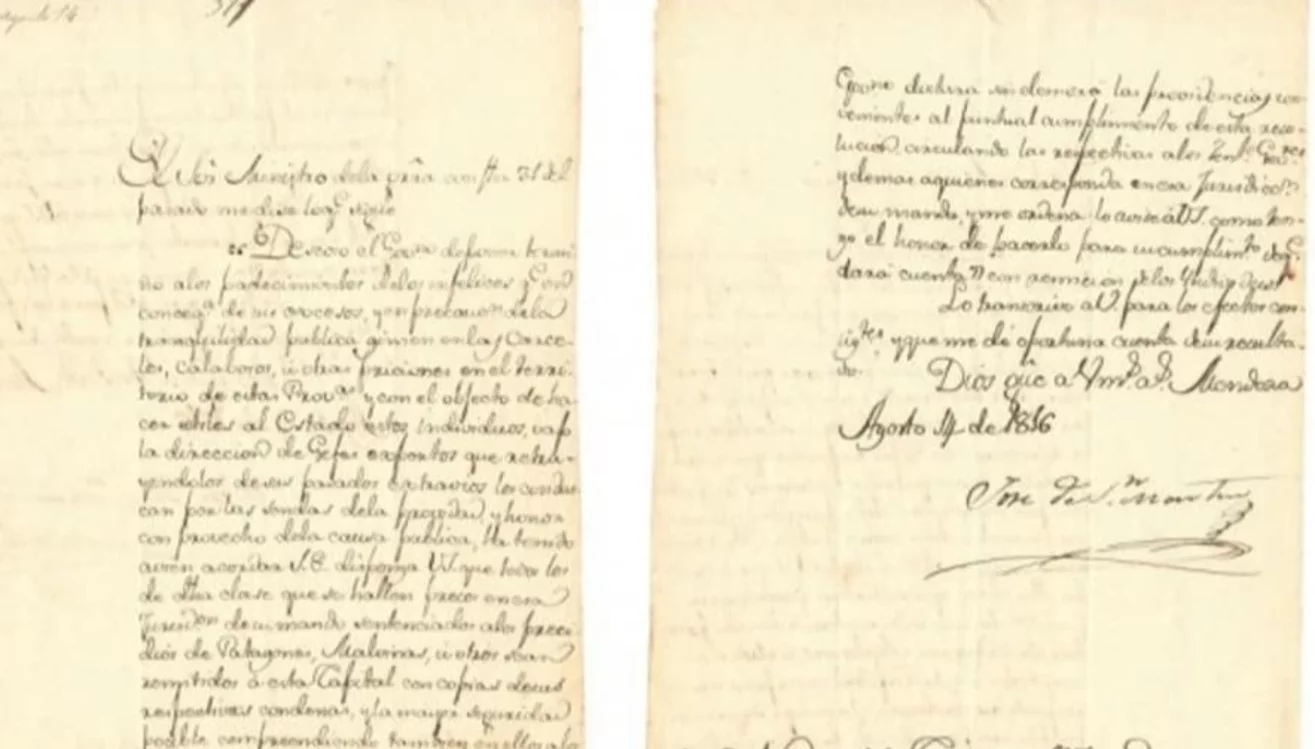 El Sōr Ministro dela grra con fha 31 del
pasado me dice loq.e sigue
"Deseoso el Gov.no de poner termi-
no alos padecimientos delos infelices q.e en
conseq.a de sus excesos, y en precauc.n dela
tranquilidad publica gimen en las Carce-
les, calabozos, ú otras priciones en el terri-
torio de estas Prov.as y con el objecto de ha-
cer utiles al Estado estos individuos, vajo
la direccion de Gefes expertos que retra-
yendolos de sus pasados extravios los condus-
can por las sendas dela probedad, y honor
con provecho dela causa publica, Ha tenido
avien acordar S.E. disponga VS. que todos los
de dha clase que se hallen presos en esa
Jurisd.on desu mando sentenciados alos presi-
dios de Patagones, Malvinas, ú otros sean
remitidos á esta Capital con copias desus
respectivas condenas, y la mayor seguridad
posible comprendiendo tambien en ellos alos
dictará sin demora las providencias con-
cernientes al puntual cumplimiento de esta reso-
lucion, circulando las respectivas alos Ten.tes Gov.res
y demas aquienes corresponda en esa Jurisdicc.n
desu mando, y me ordena lo avise áVS. como ten-
go el honor de hacerlo para su cumplim.to
dará cuenta con remision delos
Lo transcrivo a V. para los efectos con-
sig.tes y que me dé oportuna cuenta desu resulta-
do.
Dios gūe a Vm.s a.s Mendoza
Agosto 14 de 1816
Jose de S.n Martin